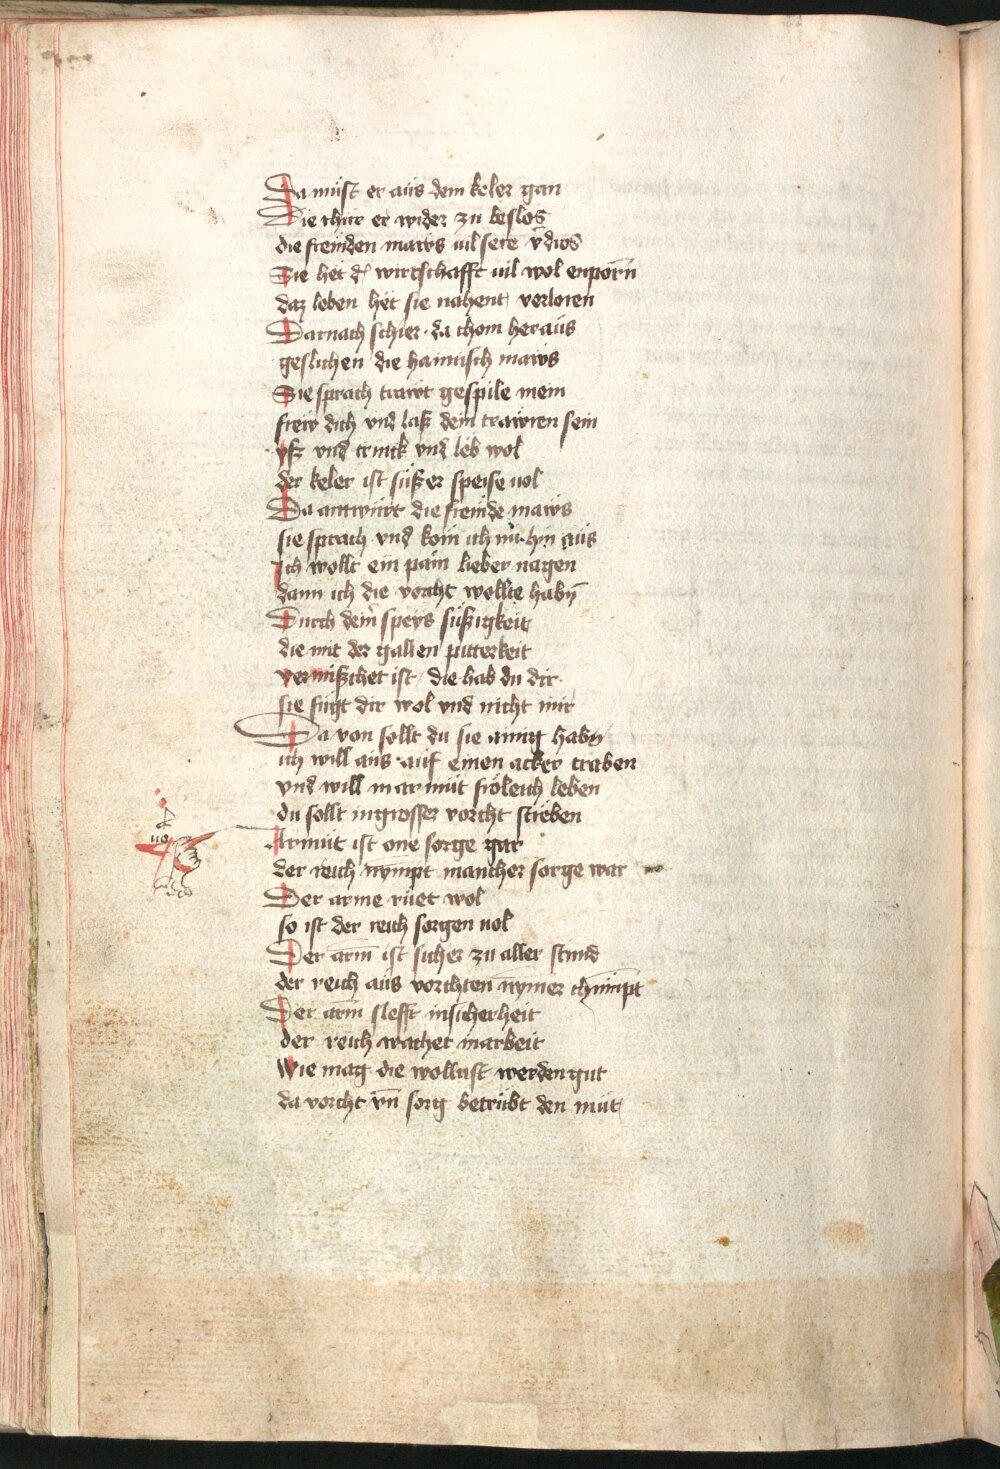 Da můst er aůs dem keler gan
Die thür er wider zu beslos
die fremden maws uil sere v̄dros
Sie het d' wirtschafft uil wol enporn̄
daz leben het sie nahent verloren
Darnach schier da chom heraůs
geslichen die haimisch maẅs
Sie sprach trawt gespile mein
freẅ dich vnd laß dein traẅren sein
yß vnd trinck vnd leb wol
der keler ist süßer speise uol
Da antwürt die fremde maẅs
sie sprach vnd kom ich nur hin aůs
Ich wollt ein pain lieber nagen
dann ich die vorcht wollte habn̄
Durch dein' speys süßigkeit
die mit der gallen pitterkeit
vermißchet ist die hab du dir
sie fügt dir wol vnd nicht mir
Da von sollt du sie ainig habn̄
ich will aůs auf einen acker traben
vnd will in armüt fröleich leben
du sollt in grosser vorcht streben
no
Armüt ist one sorge gar
der reich nympt mancher sorge war
Der arme rüet wol
so ist der reich sorgen uol
Der arm̄ ist sicher zu aller stund
der reich aůs vorchten nymer chūmpt
Der arm̄ slefft in sicherheit
der reich wachet in arbeit
Wie mag die wollust werden gut
da vorcht vn̄ sorg betrübt den müt